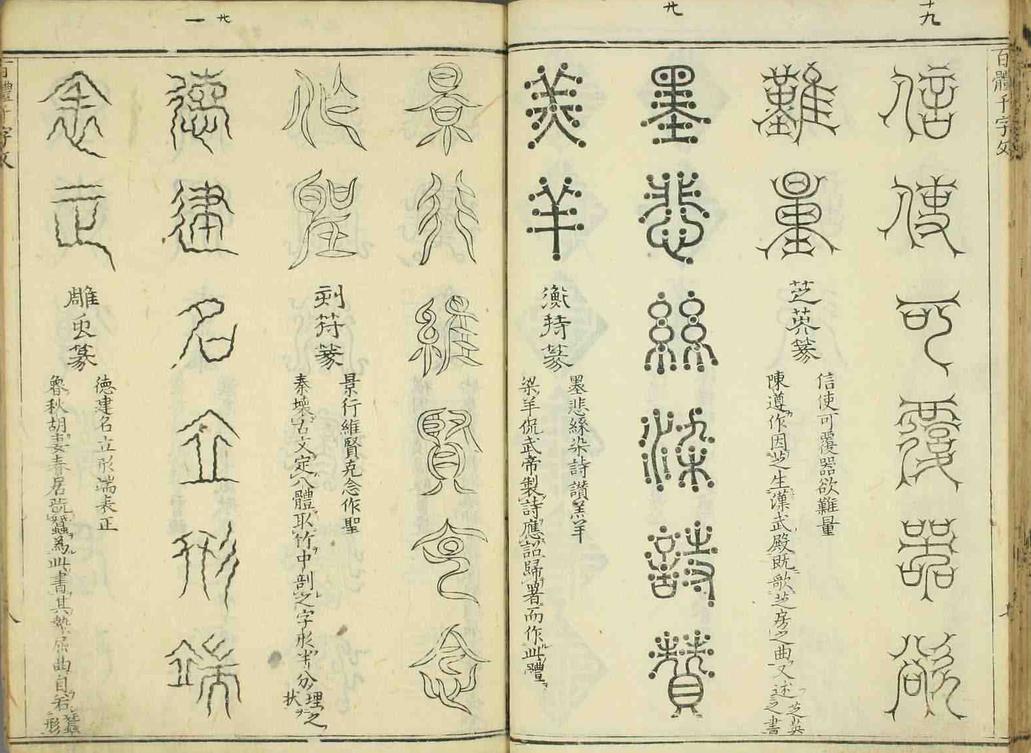 十九
百體千字文
信使可覆器欲
難量
芝英篆
信使可覆器欲難量
陳遵作因芝生漢武殿既歌芝房之曲又述芝英之書
九
墨悲絲染詩讃
羔羊
衡持篆
墨悲絲染詩讃羔羊
梁羊侃武帝製詩應詔歸署而作此體
景行維賢克念
作聖
剣符篆
景行維賢克念作聖
秦壊古文定八體取竹中剖之字形半分理之状
德建名立形端
表正
雕虫篆
德建名立形端表正
魯秋胡妻春居翫蠶為此書其勢屈曲自若蠶形
百體千字文
一